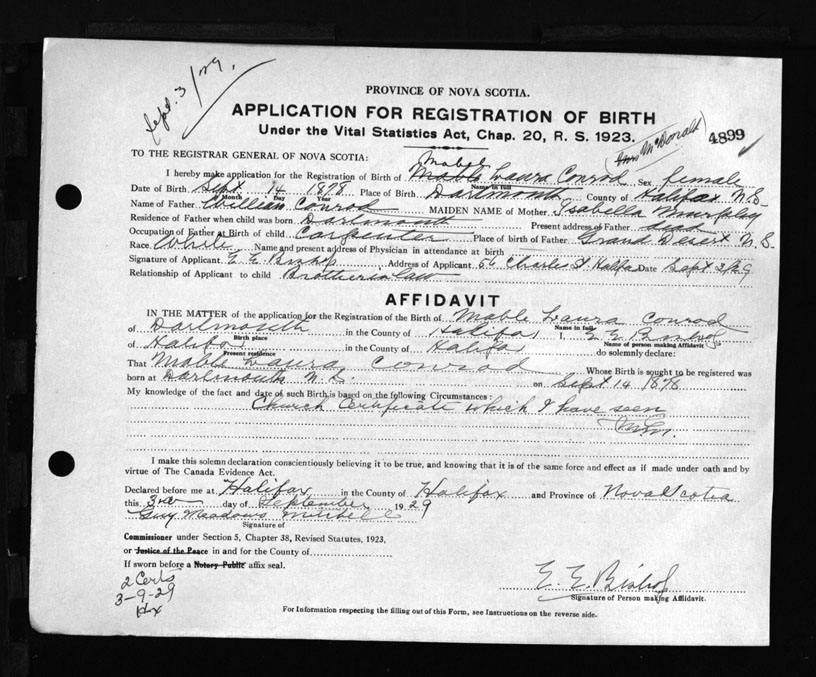 Sept. 3/29.
PROVINCE OF NOVA SCOTIA.
APPLICATION FOR REGISTRATION OF BIRTH
Under the Vital Statistics Act, Chap. 20, R. S. 1923.
McDonald
4899
TO THE REGISTRAR GENERAL OF NOVA SCOTIA:
Mabel
I hereby make application for the Registration of Birth of Mable Laura Conrod Sex female
Name in full
Date of Birth Sept. 14 1878 Place of Birth Dartmouth County of Halifax N.S.
Month Day Year
Name of Father William Conrod MAIDEN NAME of Mother Isabella Murphy
Residence of Father when child was born Dartmouth Present address of Father dead
Occupation of Father at Birth of child Carpenter Place of birth of Father Grand Desert N.S.
Race White Name and present address of Physician in attendance at birth
Signature of Applicant E E Bishop Address of Applicant 56 Charles St Halifax Date Sept 3/29
Relationship of Applicant to child Brother in law
AFFIDAVIT
IN THE MATTER of the application for the Registration of the Birth of Mable Laura Conrod
Name in full
of Dartmouth in the County of Halifax I, E E Bishop
Birth place Name of person making Affidavit
of Halifax in the County of Halifax do solemnly declare:
Present residence
That Mable Laura Conrod Whose Birth is sought to be registered was
born at Dartmouth N.S. on Sept 14 1878
My knowledge of the fact and date of such Birth is based on the following Circumstances:
Church Certificate which I have seen
I make this solemn declaration conscientiously believing it to be true, and knowing that it is of the same force and effect as if made under oath and by
virtue of The Canada Evidence Act.
Declared before me at Halifax in the County of Halifax and Province of Nova Scotia
this 3rd day of September 1929
Guy Meadows
Signature of
Commissioner under Section 5, Chapter 38, Revised Statutes, 1923,
or Justice of the Peace in and for the County of
If sworn before a Notary Public affix seal.
2 Certs
3-9-29
Hx
E. E. Bishop
Signature of Person making Affidavit.
For Information respecting the filling out of this Form, see Instructions on the reverse side.